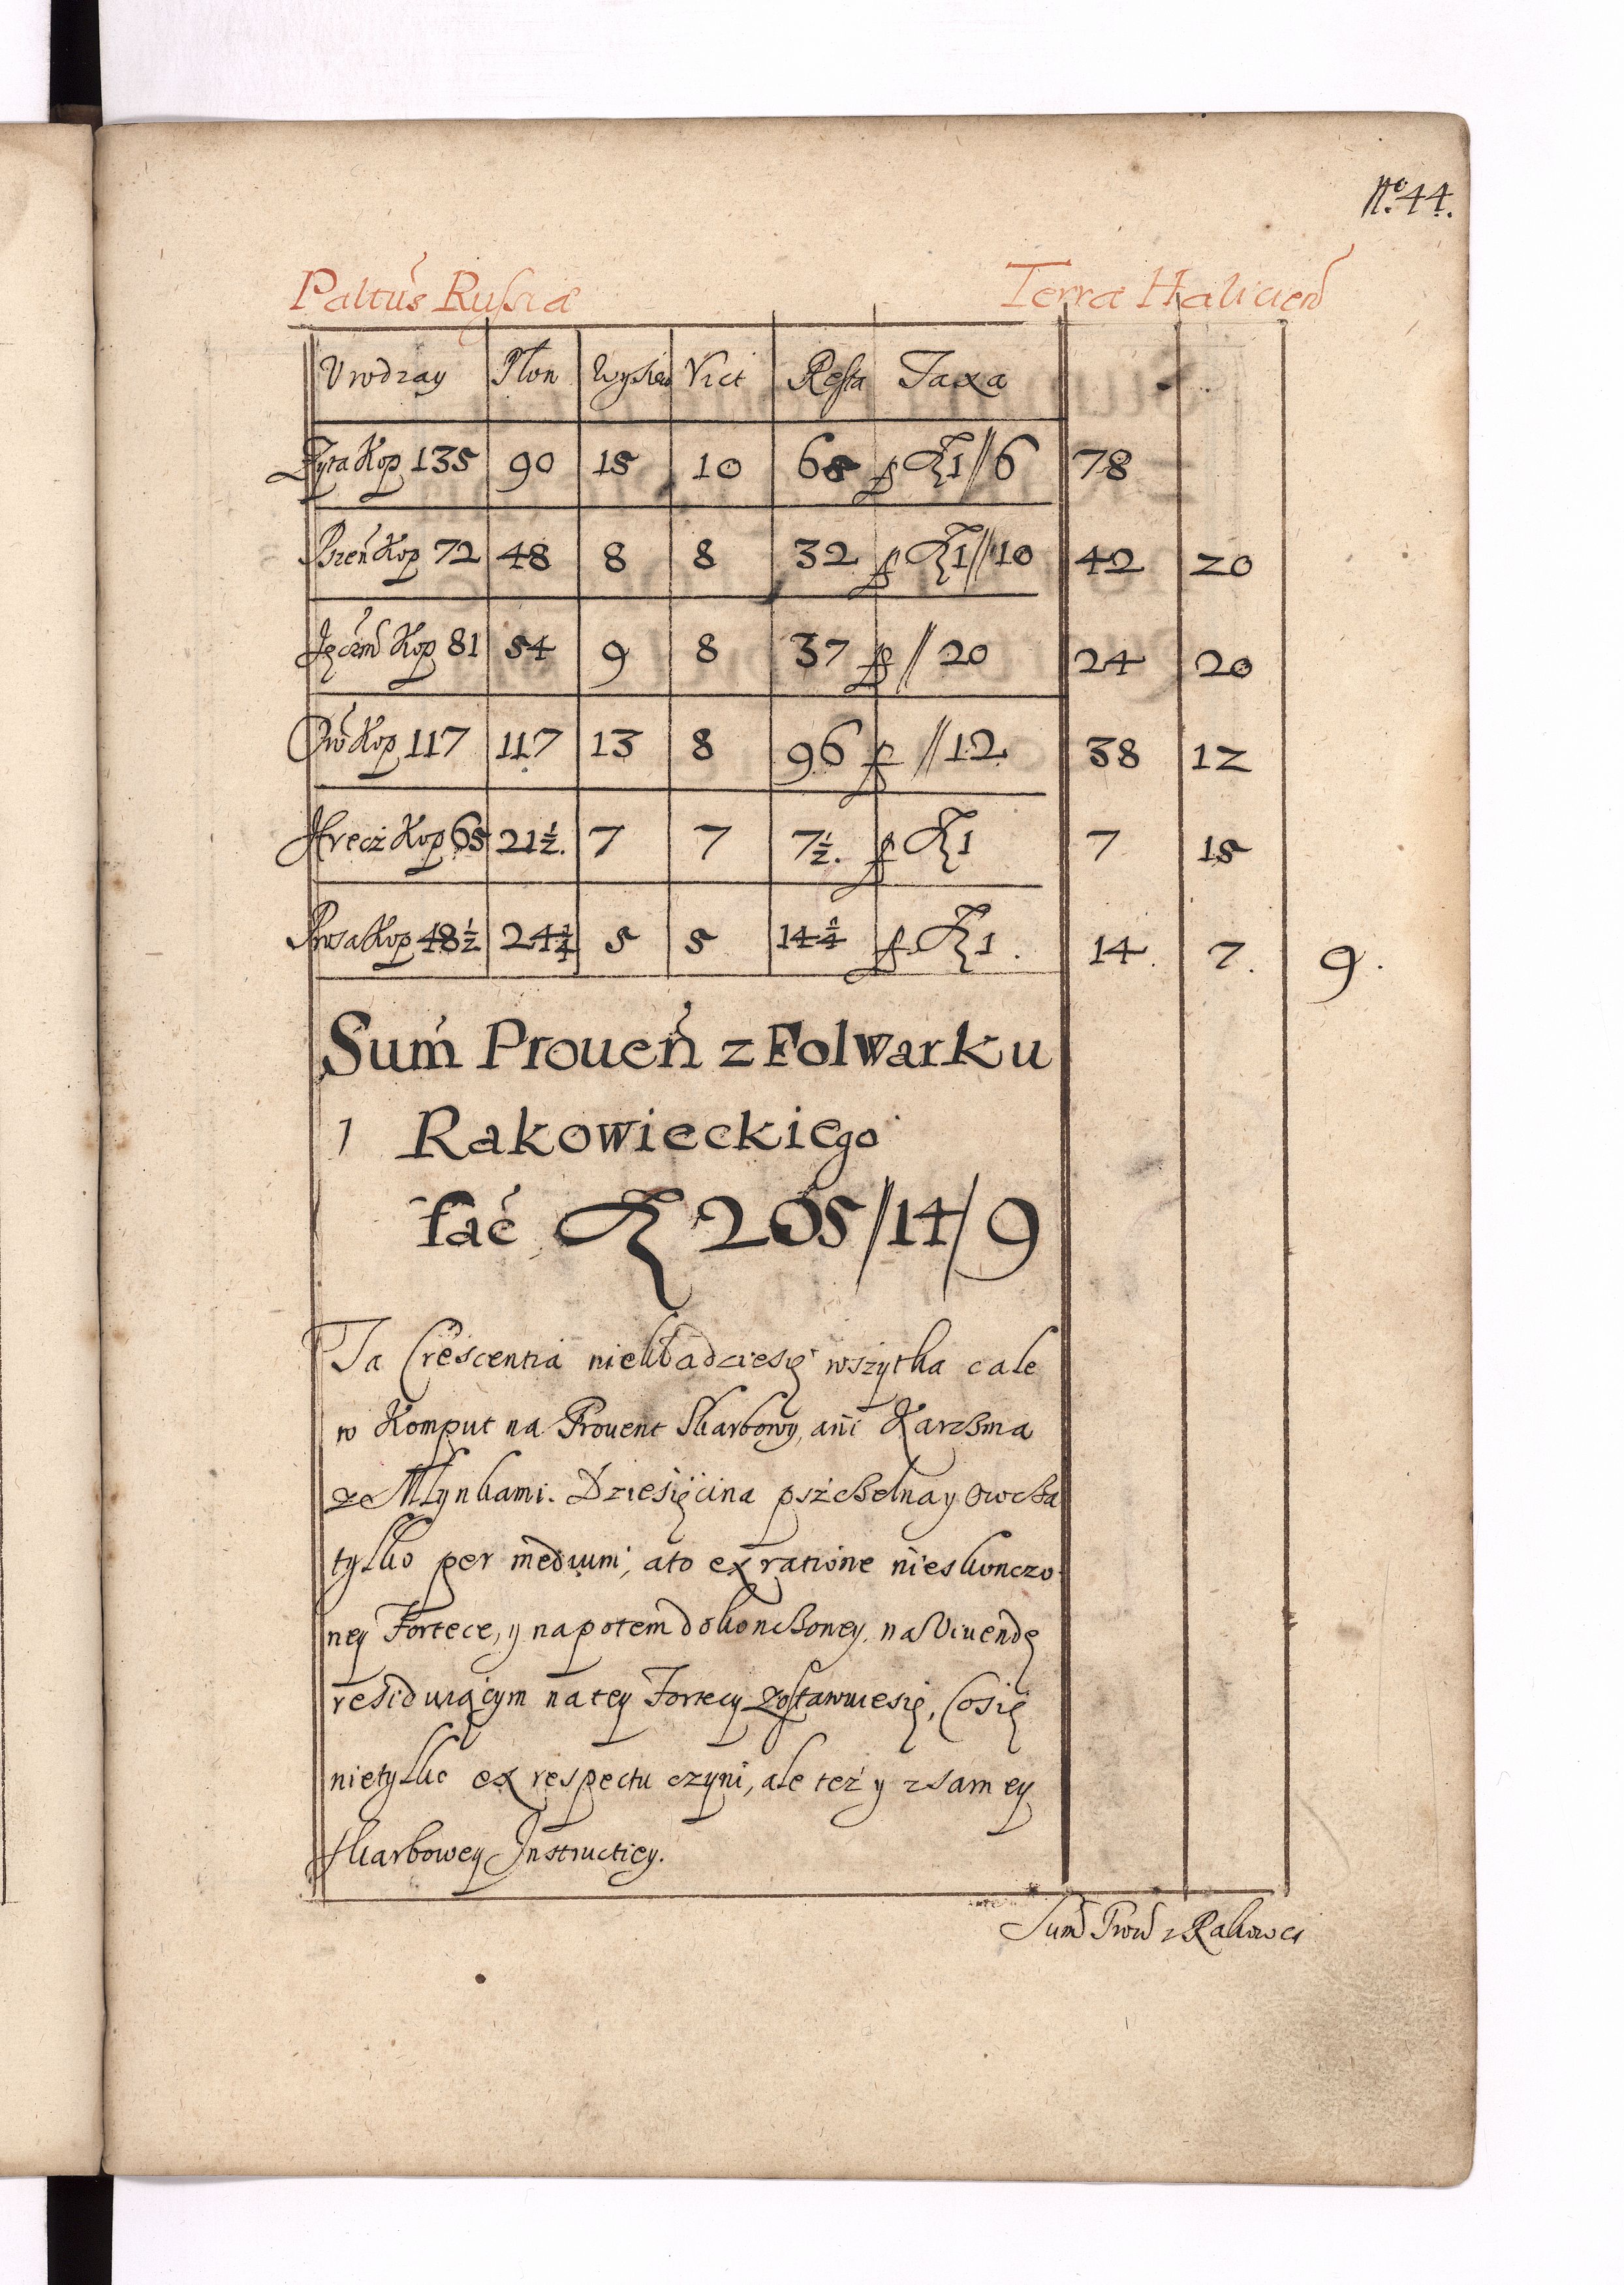 No. 44.
Paltus Russiæ Terræ Halicien
Urodzay Plon Wysiew Vict Resta Taxa
Zyta Kop 135 90 15 10 65 p Zł 1//6 78
Pszeń Kop 72 48 8 8 32 p Zł 1//10 42 20
Jęczm Kop 81 54 9 8 37 p //20 24 20
Ow Kop 117 117 13 8 96 p //12 38 12
Hrecż Kop 65 21 1/2. 7 7 7 1/2. p Zł 1 7 15
Prosa Kop 48 1/2 24 1/4 5 5 14 1/4 p Zł 1. 14. 7. 9.
Sum Prouen z Folwarku
1 Rakowieckiego
fac Zł 205//14/9
Ta Crescentia niekładziesię wszytka cale
w Komput na Prouent Skarbowy, ani Karzma
ze Młynkami. Dziesięcina pszczelna y Owcza
tylko per medium, ato ex ratione nieskonczo
ney Fortece, y napotem dokonczoney, na Viuendę
residuiącym na tey Fortecy zostawuiesię, Cosię
nietylko ex respectu czyni, ale też y z samey
skarbowey Instructiey.
Sum Prou z Rakowca